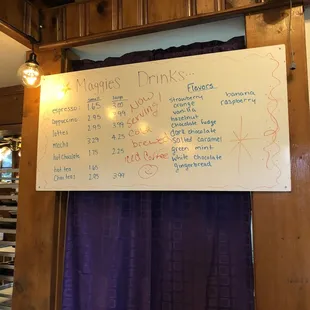 Maggies Drinks...
small large
espresso 1.65 2.00
cappuccino 2.95 3.99
lattes 2.95 3.99
mocha 3.29 4.25
hot chocolate 1.75 2.25
hot tea 1.65
Chai tea 2.95 3.99
NOW!
serving
Cold
brewed
iced coffee
Flavors
strawberry banana
orange raspberry
vanilla
hazelnut
chocolate fudge
dark chocolate
salted caramel
green mint
white chocolate
gingerbread